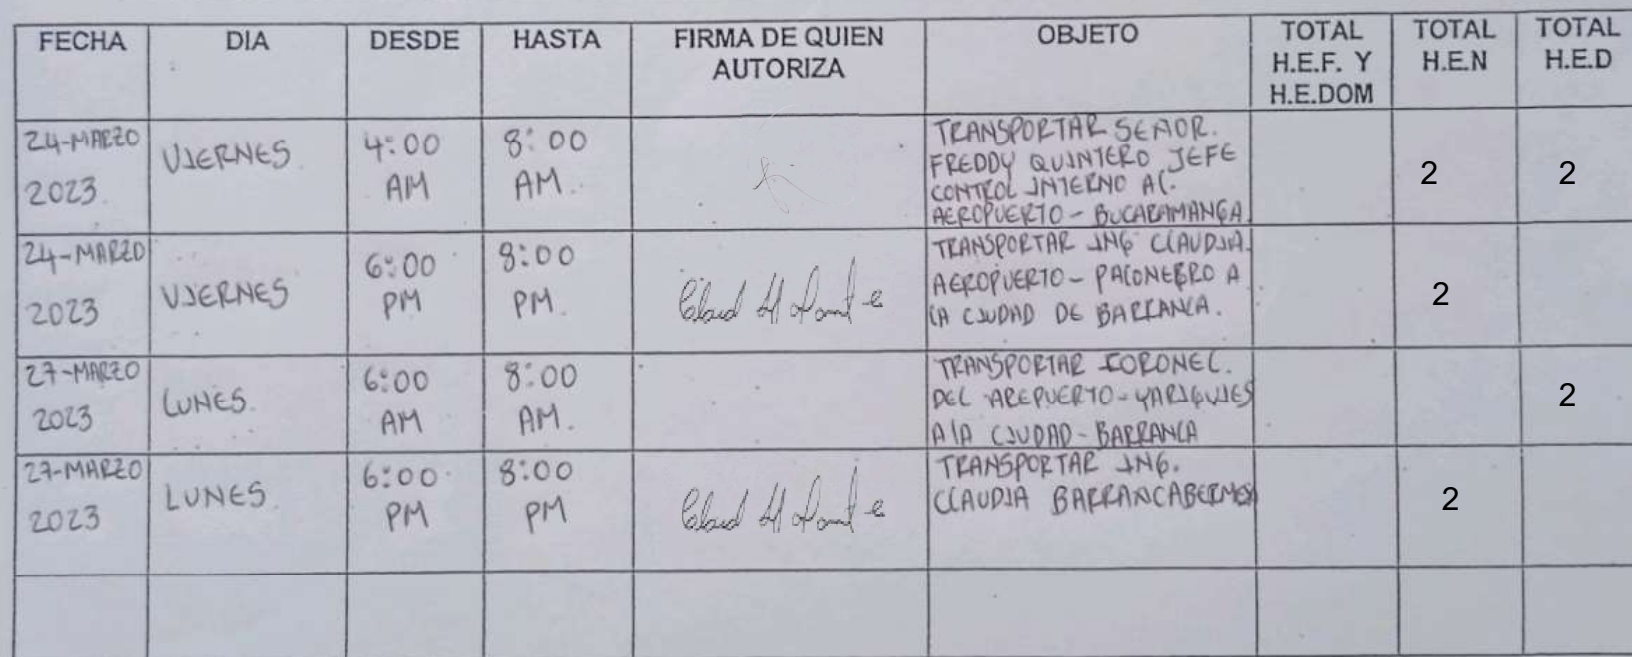 FECHA DIA DESDE HASTA FIRMA DE QUIEN AUTORIZA OBJETO TOTAL H.E.F. Y H.E.DOM TOTAL H.E.N TOTAL H.E.D
24-MARZO 2023. VIERNES 4:00 AM 8:00 AM. TRANSPORTAR SEÑOR.
FREDDY QUINTERO JEFE
CONTROL INTERNO AL.
AEROPUERTO - BUCARAMANGA. 2 2
24-MARZO 2023 VIERNES 6:00 PM 8:00 PM. TRANSPORTAR ING CLAUDIA.
AEROPUERTO - PALONEGRO A
LA CIUDAD DE BARRANCA. 2
27-MARZO 2023 LUNES. 6:00 AM 8:00 AM. TRANSPORTAR CORONEL.
DEL AREPUERTO - YARIGUIES
A LA CIUDAD - BARRANCA 2
27-MARZO 2023 LUNES. 6:00 PM 8:00 PM TRANSPORTAR ING.
CLAUDIA BARRANCABERMEJ 2